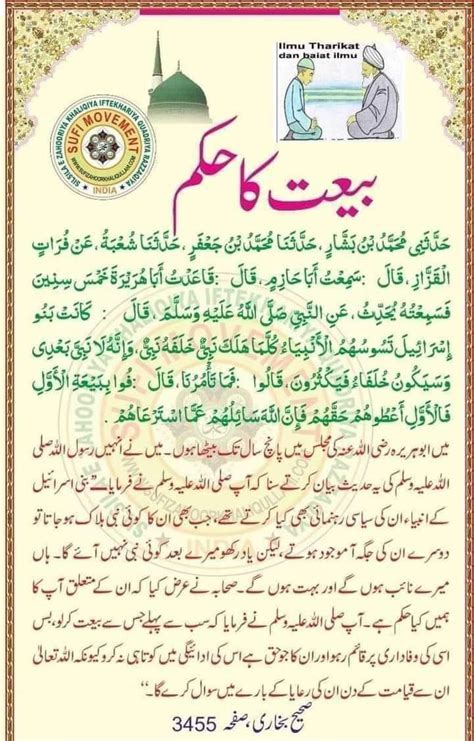 Ilmu Tharikat
dan baiat ilmu
SILSILA E ZAHOORIYA KHALIQIYA IFTEKHARIYA QUADRIYA RAZZAQIYA
SUFI MOVEMENT
INDIA
بیعت کا حکم
حَدَّثَنِي مُحَمَّدُ بْنُ بَشَّارٍ، حَدَّثَنَا مُحَمَّدُ بْنُ جَعْفَرٍ، حَدَّثَنَا شُعْبَةُ، عَنْ فُرَاتٍ
الْقَزَّازِ، قَالَ : سَمِعْتُ أَبَا حَازِمٍ، قَالَ : قَاعَدْتُ أَبَا هُرَيْرَةَ خَمْسَ سِنِينَ
فَسَمِعْتُهُ يُحَدِّثُ، عَنِ النَّبِيِّ صَلَّى اللَّهُ عَلَيْهِ وَسَلَّمَ، قَالَ : كَانَتْ بَنُو
إِسْرَائِيلَ تَسُوسُهُمُ الْأَنْبِيَاءُ كُلَّمَا هَلَكَ نَبِيٌّ خَلَفَهُ نَبِيٌّ، وَإِنَّهُ لَا نَبِيَّ بَعْدِي
وَسَيَكُونُ خُلَفَاءُ فَيَكْثُرُونَ، قَالُوا : فَمَا تَأْمُرُنَا، قَالَ : فُوا بِبَيْعَةِ الْأَوَّلِ
فَالْأَوَّلِ أَعْطُوهُمْ حَقَّهُمْ فَإِنَّ اللَّهَ سَائِلُهُمْ عَمَّا اسْتَرْعَاهُمْ .
میں ابوہریرہ رضی اللہ عنہ کی مجلس میں پانچ سال تک بیٹھا ہوں۔ میں نے انہیں رسول اللہ صلی
اللہ علیہ وسلم کی یہ حدیث بیان کرتے سنا کہ آپ صلی اللہ علیہ وسلم نے فرمایا ”بنی اسرائیل
کے انبیاء ان کی سیاسی رہنمائی بھی کیا کرتے تھے، جب بھی ان کا کوئی نبی ہلاک ہو جاتا تو
دوسرے ان کی جگہ آ موجود ہوتے، لیکن یاد رکھو میرے بعد کوئی نبی نہیں آئے گا۔ ہاں
میرے نائب ہوں گے اور بہت ہوں گے۔ صحابہ نے عرض کیا کہ ان کے متعلق آپ کا
ہمیں کیا حکم ہے۔ آپ صلی اللہ علیہ وسلم نے فرمایا کہ سب سے پہلے جس سے بیعت کر لو، بس
اسی کی وفاداری پر قائم رہو اور ان کا جو حق ہے اس کی ادائیگی میں کوتاہی نہ کرو کیونکہ اللہ تعالیٰ
ان سے قیامت کے دن ان کی رعایا کے بارے میں سوال کرے گا۔“
صحیح بخاری، صفحہ 3455